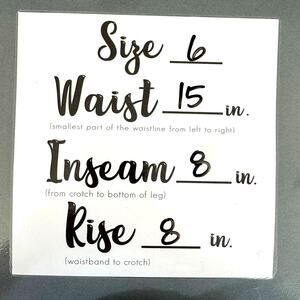 Size 6
Waist 15 in.
(smallest part of the waistline from left to right)
Inseam 8 in.
(from crotch to bottom of leg)
Rise 8 in.
(waistband to crotch)